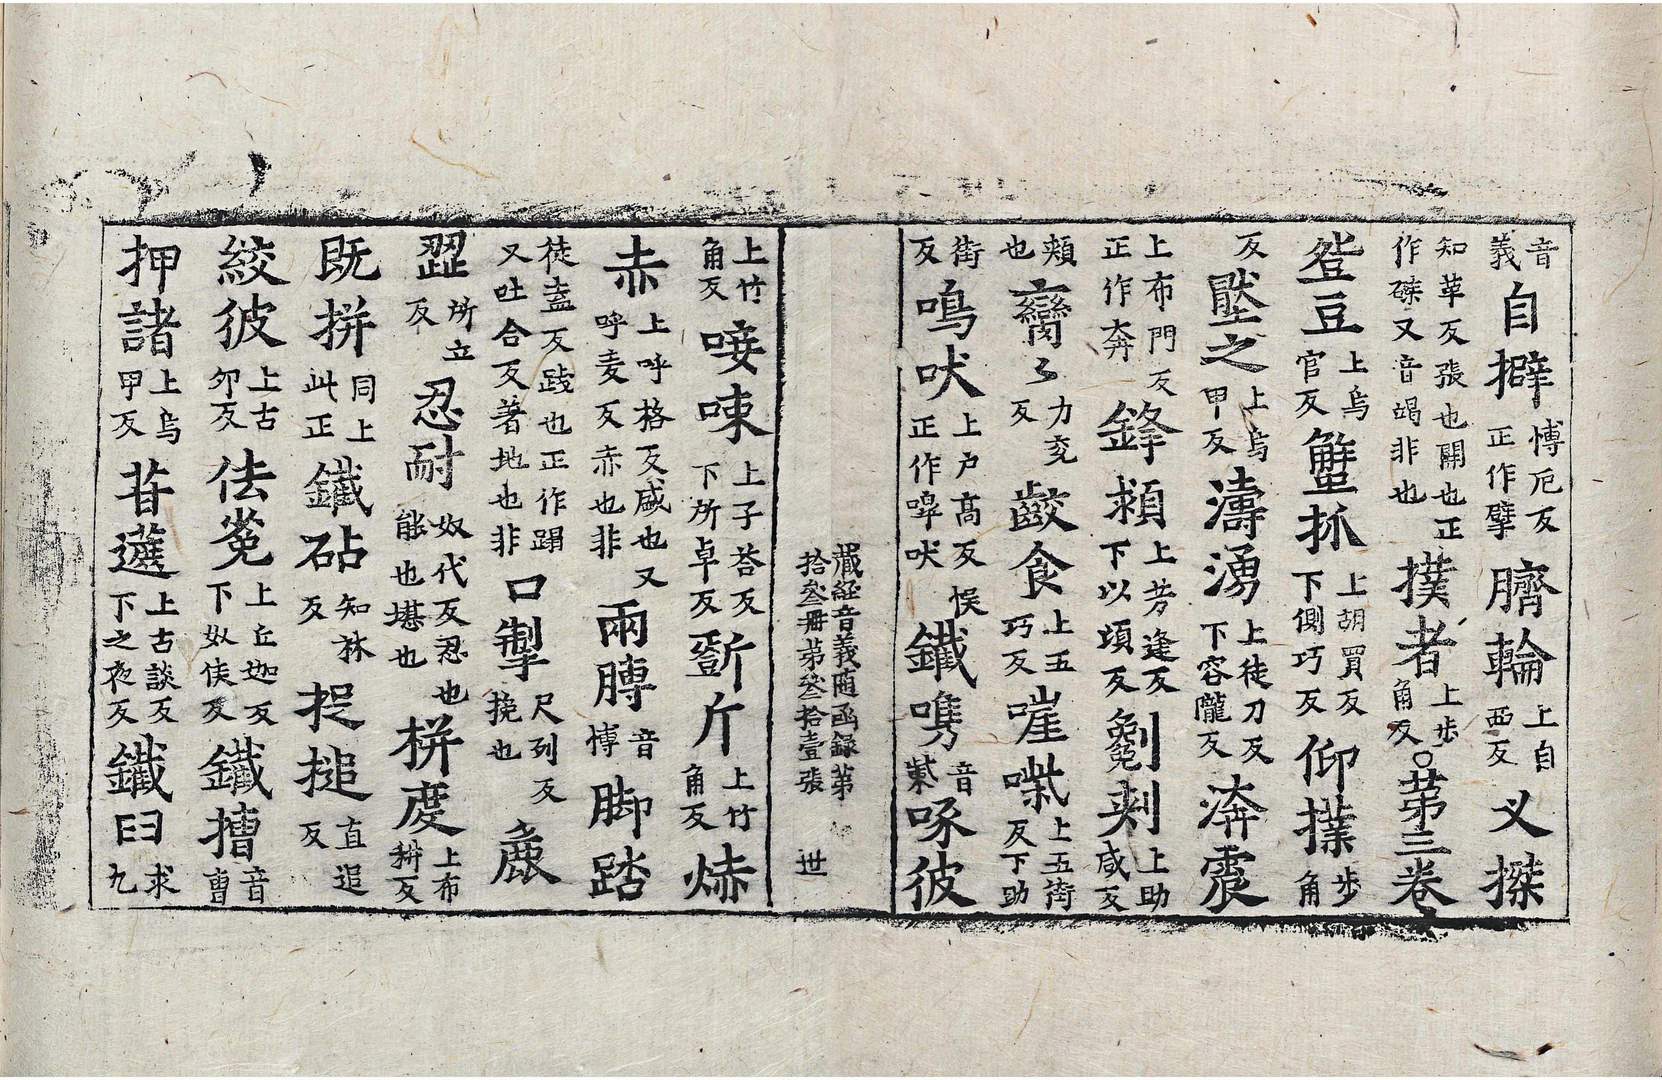 音義自擗愽厄反正作擘臍輪上自西反乂撡
知革反張也開也正作磔又音竭非也撲者上步角反○苐三卷
豋豆上烏官反蟹抓上胡買反下側巧反仰撲步角
反壓之上烏甲反濤湧上徒刀反下容隴反渀震
上布門反正作奔鋒頛上芳逢反下以頃反剜刾上助咸反
頰也臠〻力兖反齩食上五巧反嘊喍上五街反下助
街反嗚吠上户髙反正作嘷吠悮鐵嘴音紫啄彼
藏經音義随函録第拾叁冊苐叁拾壹張 世
上竹角反唼㖼上子荅反下所卓反斲斤上竹角反烞
赤上呼格反咸也又呼麦反赤也非兩膊音愽脚踏
徒盍反踐也正作蹋又吐合反著地也非口掣尺列反挽也麁
澀所立反忍耐奴代反忍也能也堪也栟度上布耕反
既拼同上此正鐵砧知林反捉搥直追反
絞彼上古夘反佉㝹上丘迦反下奴侯反鐵槽音曹
押諸上烏甲反苷蔗上古談反下之夜反鐵臼求九